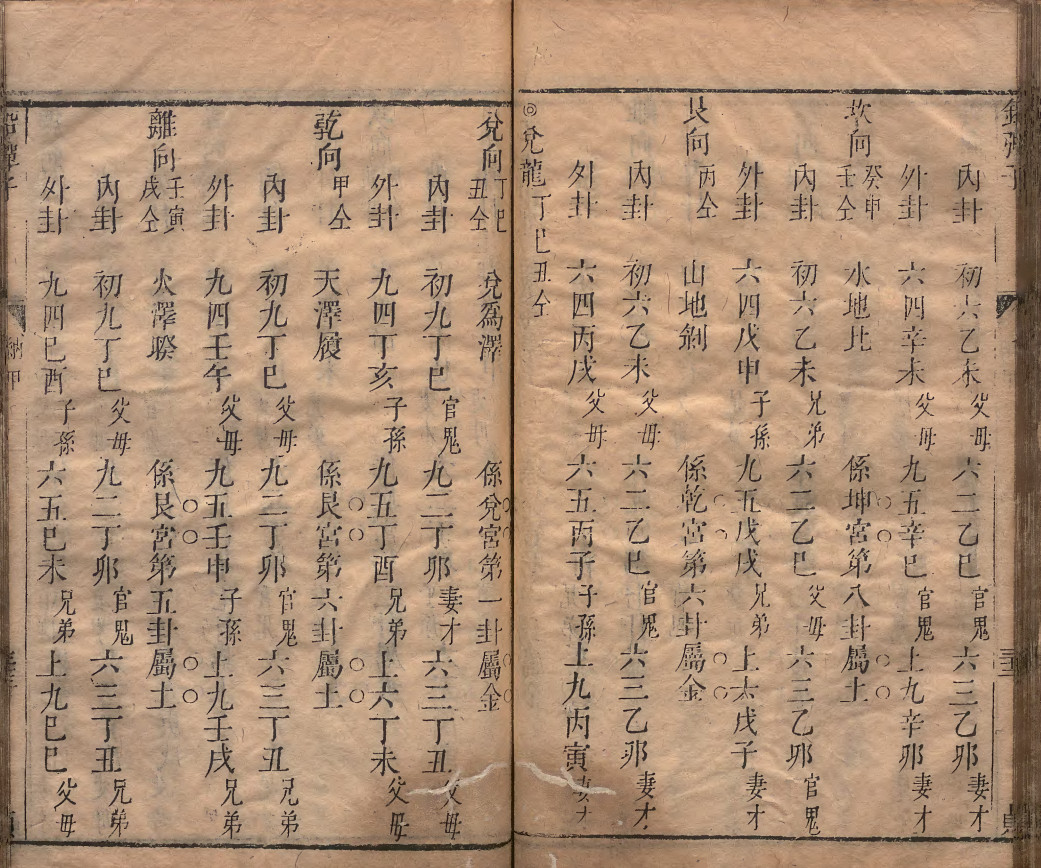 內卦 初六乙未 父母 六二乙巳 官鬼 六三乙卯 妻才
外卦 六四辛未 父母 九五辛巳 官鬼 上九辛卯 妻才
坎向 癸申壬仝 水地比 係坤宮第八卦屬土
內卦 初六乙未 兄弟 六二乙巳 父母 六三乙卯 官鬼
外卦 六四戊申 子孫 九五戊戌 兄弟 上六戊子 妻才
艮向 丙仝 山地剝 係乾宮第六卦屬金
內卦 初六乙未 父母 六二乙巳 官鬼 六三乙卯 妻才
外卦 六四丙戌 父母 六五丙子 子孫 上九丙寅 妻才
◎兌龍丁巳丑仝
兌向 丁巳丑仝 兌爲澤 係兌宮第一卦屬金
內卦 初九丁巳 官鬼 九二丁卯 妻才 六三丁丑 父母
外卦 九四丁亥 子孫 九五丁酉 兄弟 上六丁未 父母
乾向 甲仝 天澤履 係艮宮第六卦屬土
內卦 初九丁巳 父母 九二丁卯 官鬼 六三丁丑 兄弟
外卦 九四壬午 父母 九五壬申 子孫 上九壬戌 兄弟
離向 壬寅戌仝 火澤睽 係艮宮第五卦屬土
內卦 初九丁巳 父母 九二丁卯 官鬼 六三丁丑 兄弟
外卦 九四巳酉 子孫 六五巳未 兄弟 上九巳巳 父母
納甲